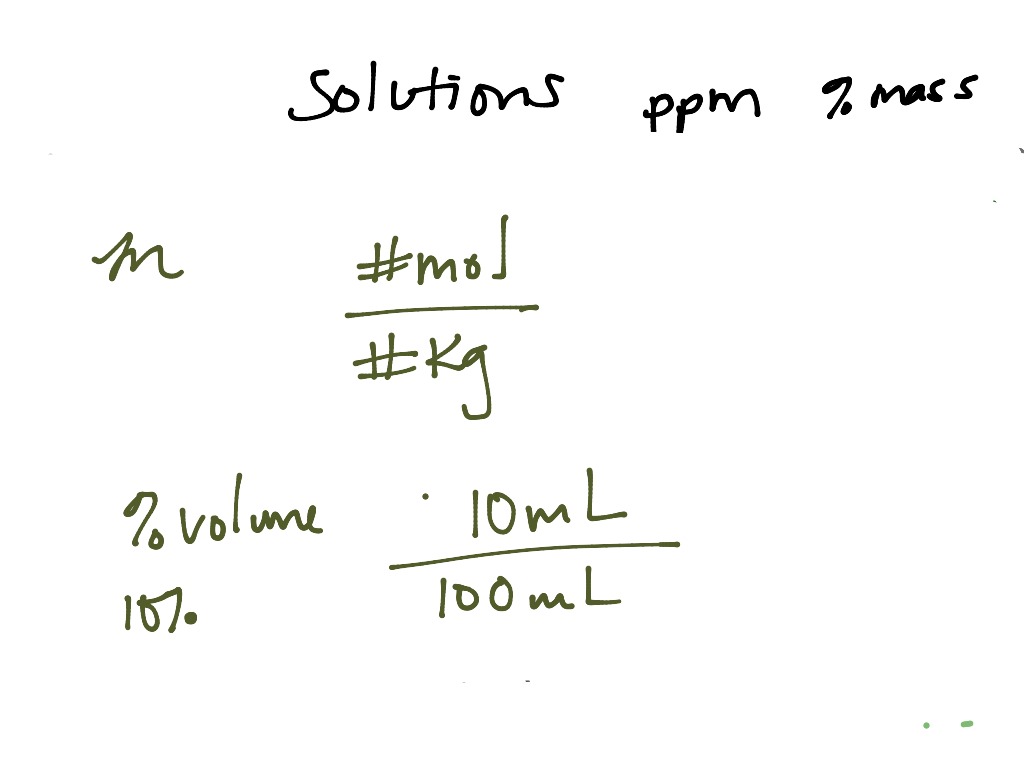 Solutions ppm % mass
m #mol
#Kg
% volume 10mL
10% 100mL